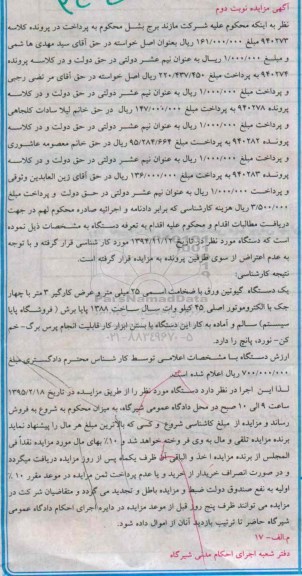 آگهی مزایده نوبت دوم
نظر به اینکه محکوم علیه شرکت مازند برج بتسل محکوم به پرداخت در پرونده کلاسه
۹۴۰۲۷۳ مبلغ ۱۶۱/۰۰۰/۰۰۰ ریال بعنوان اصل خواسته در حق آقای سید مهدی ها شمی
و مبلغ ۱/۰۰۰/۰۰۰ ریال به عنوان نیم عشر دولتی در حق دولت و در کلاسه پرونده
۹۴۰۲۷۴ به پرداخت مبلغ ۲۲۰/۴۳۷/۴۵۰ ریال اصل خواسته در حق آقای مر تضی رجبی
و پرداخت مبلغ ۱/۰۰۰/۰۰۰ ریال به عنوان نیم عشر دولتی در حق دولت و در کلاسه
پرونده ۹۴۰۲۷۸ به پرداخت مبلغ ۱۴۷/۰۰۰/۰۰۰ ریال در حق خانم لیلا سادات کلجاهی
و پرداخت مبلغ ۱/۰۰۰/۰۰۰ ریال به عنوان نیم عشر دولتی در حق دولت و در کلاسه
پرونده ۹۴۰۲۸۲ به پرداخت مبلغ ۹۵/۲۸۴/۶۶۴ ریال در حق خانم معصومه عاشوری
و پرداخت مبلغ ۱/۰۰۰/۰۰۰ ریال به عنوان نیم عشر دولتی در حق دولت و در کلاسه
پرونده ۹۴۰۲۸۳ به پرداخت مبلغ ۱۳۶/۰۰۰/۰۰۰ ریال در حق آقای زین العابدین وثوقی
و پرداخت ۱/۰۰۰/۰۰۰ ریال به عنوان نیم عشر دولتی در حق دولت و پرداخت مبلغ
۳/۵۰۰/۰۰۰ ریال هزینه کارشناسی که برابر دادنامه و اجرائیه صادره محکوم لهم در جهت
دریافت مطالبات اقدام و محکوم علیه اقدام به تعرفه دستگاه به مشخصات ذیل نموده
است که دستگاه مورد نظر در تاریخ ۱۳۹۴/۱۱/۱۲ مورد کار شناسی قرار گرفته و با توجه
به عدم اعتراض از سوی طرفین پرونده به مزایده قرار گرفته است.
نتیجه کارشناسی:
یک دستگاه گیوتین ورق با ضخامت اسمی ۲۵ میلی متر و عرض کارگیر ۳ متر با چهار
جک با الکتروموتور اصلی ۴۵ کیلو وات سال ساخت ۱۳۸۸ پایا برش (فروشگاه پایا
سیستم) سالم و آماده به کار این دستگاه با بستن ابزار کار قابلیت انجام پرس برگ- خم
کن- نورد، پانچ را دارد.
ارزش دستگاه با مشخصات اعلامی توسط کار شناس محترم دادگستری مبلغ
۷۰۰/۰۰۰/۰۰۰ ریال اعلام شده است.
لذا این اجرا در نظر دارد دستگاه مورد نظر را از طریق مزایده در تاریخ ۱۳۹۵/۲/۱۸
ساعت ۹ الی ۱۰ صبح در محل دادگاه عمومی شیرگاه، به میزان محکوم به شروع به فروش
رساند و مزایده از مبلغ کاشناسی شروع و کسی که بالاترین مبلغ هر مال را پیشنهاد نماید
برنده مزایده تلقی و مال به وی فر وخته خواهد شد و ۱۰٪ بهای مال مورد مزایده نقدا فی
المجلس از برنده مزایده اخذ و الباقی آن ظرف یکماه پس از روز مزایده دریافت میگردد
و در صورت انصراف خریدار از خرید و یا عدم پرداخت ثمن مزایده در موعد مقرر ۱۰٪
اولیه به نفع صندوق دولت ضبط و مزایده باطل و تجدید می گردد و متقاضیان شرکت در
مزایده می توانند ظرف پنج روز قبل از موعد مزایده در دایره اجرای احکام دادگاه عمومی
شیرگاه حاضر تا ترتیب بازدید آنان از اموال داده شود.
م.الف- ۱۷
دفتر شعبه اجرای احکام مدنی شیرگاه